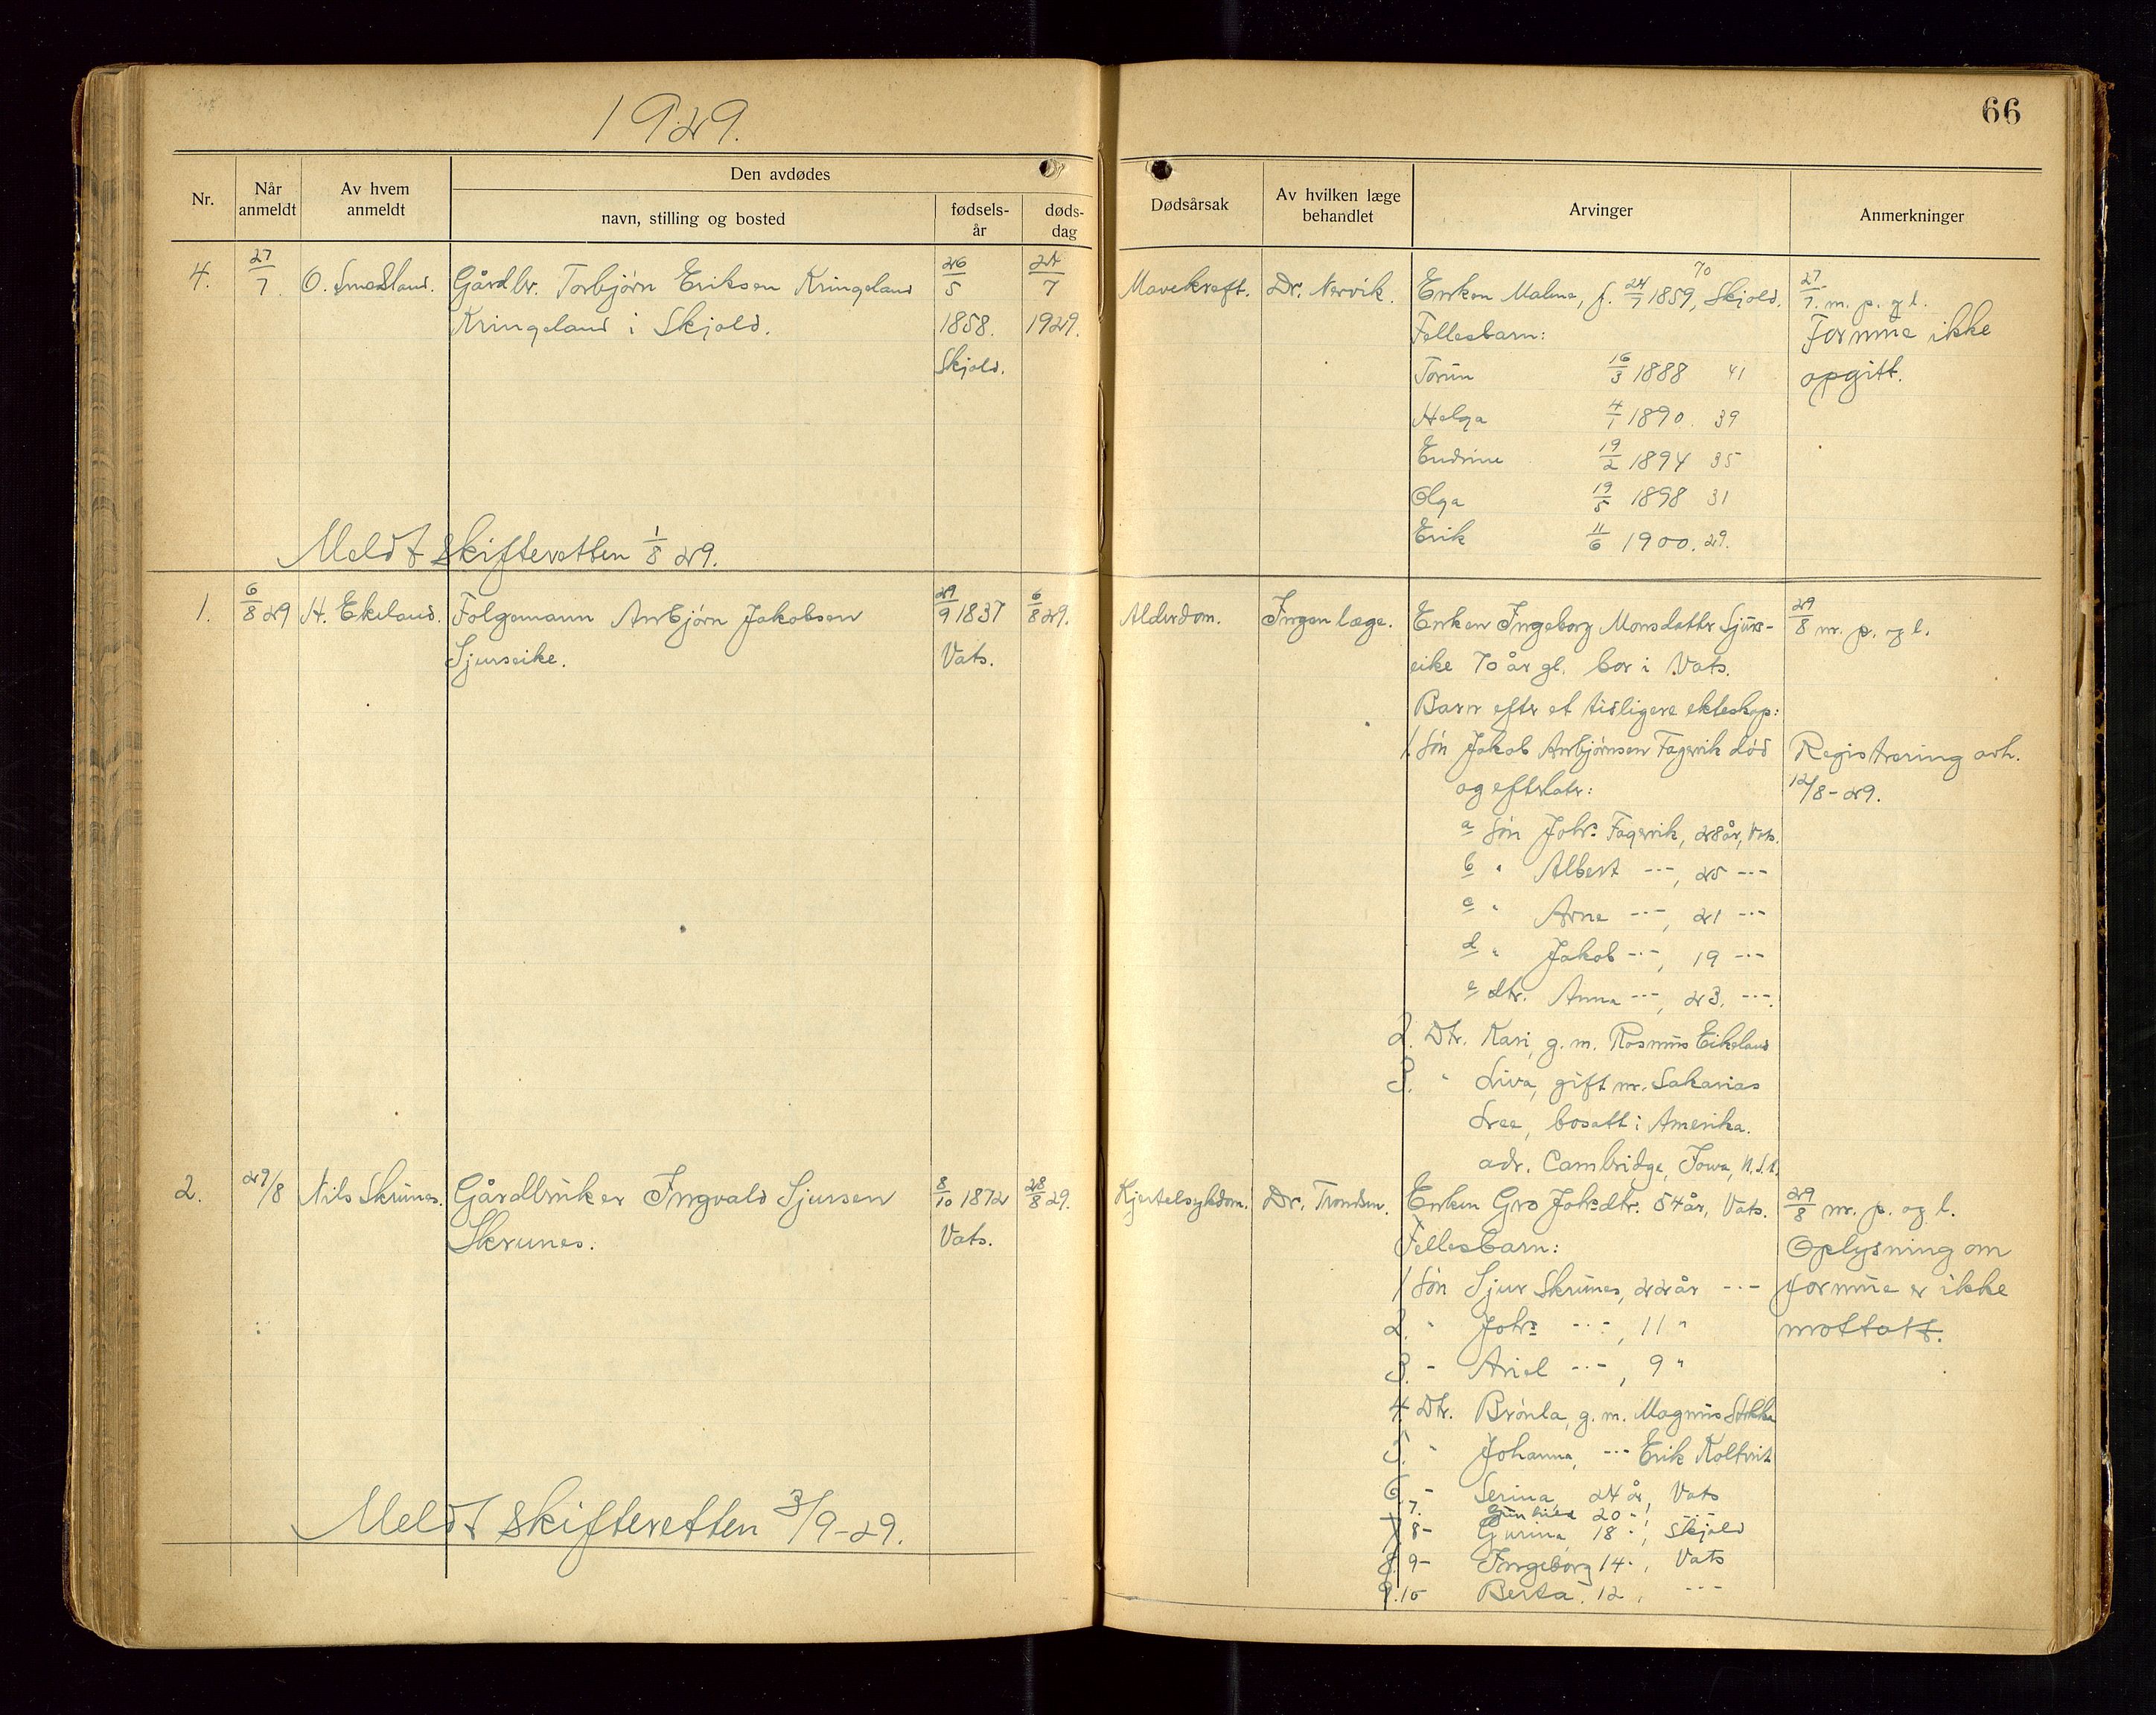 1929.
66
Nr.
Når anmeldt
Av hvem anmeldt
Den avdødes
navn, stilling og bosted
fødsels-år
døds-dag
Dødsårsak
Av hvilken læge behandlet
Arvinger
Anmerkninger
4. 27/7 O. Smedsland. Gårdbr. Torbjørn Eriksen Kringeland 26/5 24/7 Mavekreft. Dr. Nervik. Enken Malene, f. 24/7 1859, 70 Skjold. 27/7. m. p. og l.
Kringeland i Skjold. 1858. 1929. Fellesbarn: Formue ikke
Skjold. Torun 16/3 1888 41 opgitt.
Helga 4/1 1890. 39
Endrine 19/2 1894 35
Olga 19/5 1898 31
Erik 11/6 1900. 29.
Meldt skifteretten 1/8 29.
1. 6/8 29 H. Ekeland. Folgemann Anbjørn Jakobsen 29/9 1837 6/8 29. Alderdom. Ingen læge. Enken Ingeborg Monsdatter Sjurs- 29/8 m. p. og l.
Sjurseike. Vats. eike 70 år gl. bor i Vats.
Barn efter et tidligere ekteskap:
1. Søn Jakob Anbjørnsen Fagervik død Registrering avh.
og efterlater: 12/8-29.
a Søn Johs. Fagervik, 28 år, Vats.
b " Albert -"-, 25 -"-
c " Arne -"-, 21 -"-
d " Jakob -"-, 19 -"-
e dtr. Anna -"-, 23. -"-.
2. Dtr. Kari, g. m. Rasmus Eikeland
3. " Liva, gift m. Sakarias
Aree, bosatt i Amerika.
adr. Cambridge, Iowa, U.S.A.
2. 29/8 Nils Skrunes. Gårdbruker Ingvald Sjursen 8/10 1872 28/8 29. Kjertelsykdom. Dr. Trondsen. Enken Gro Johs.dtr. 54 år, Vats. 29/8 m. p. og l.
Skrunes. Vats. Fellesbarn: Oplysning om
1 Søn Sjur Skrunes, 22 år -"- formue er ikke
2. " Johs. -"-, 11 " mottatt.
3. - Ariel -"-, 9 "
4. Dtr. Brønla, g. m. Magnus Stokka
5. " Johanna, -"- Erik Kaltveit
6. - Serina, 24 år, Vats
7. Gunhild 20 ", -"-
7 8 - Gurina, 18 ", Skjold
8 9 - Ingeborg 14 ", Vats
9. 10 Berta, 12 , -"-
Meldt skifteretten 3/9-29.